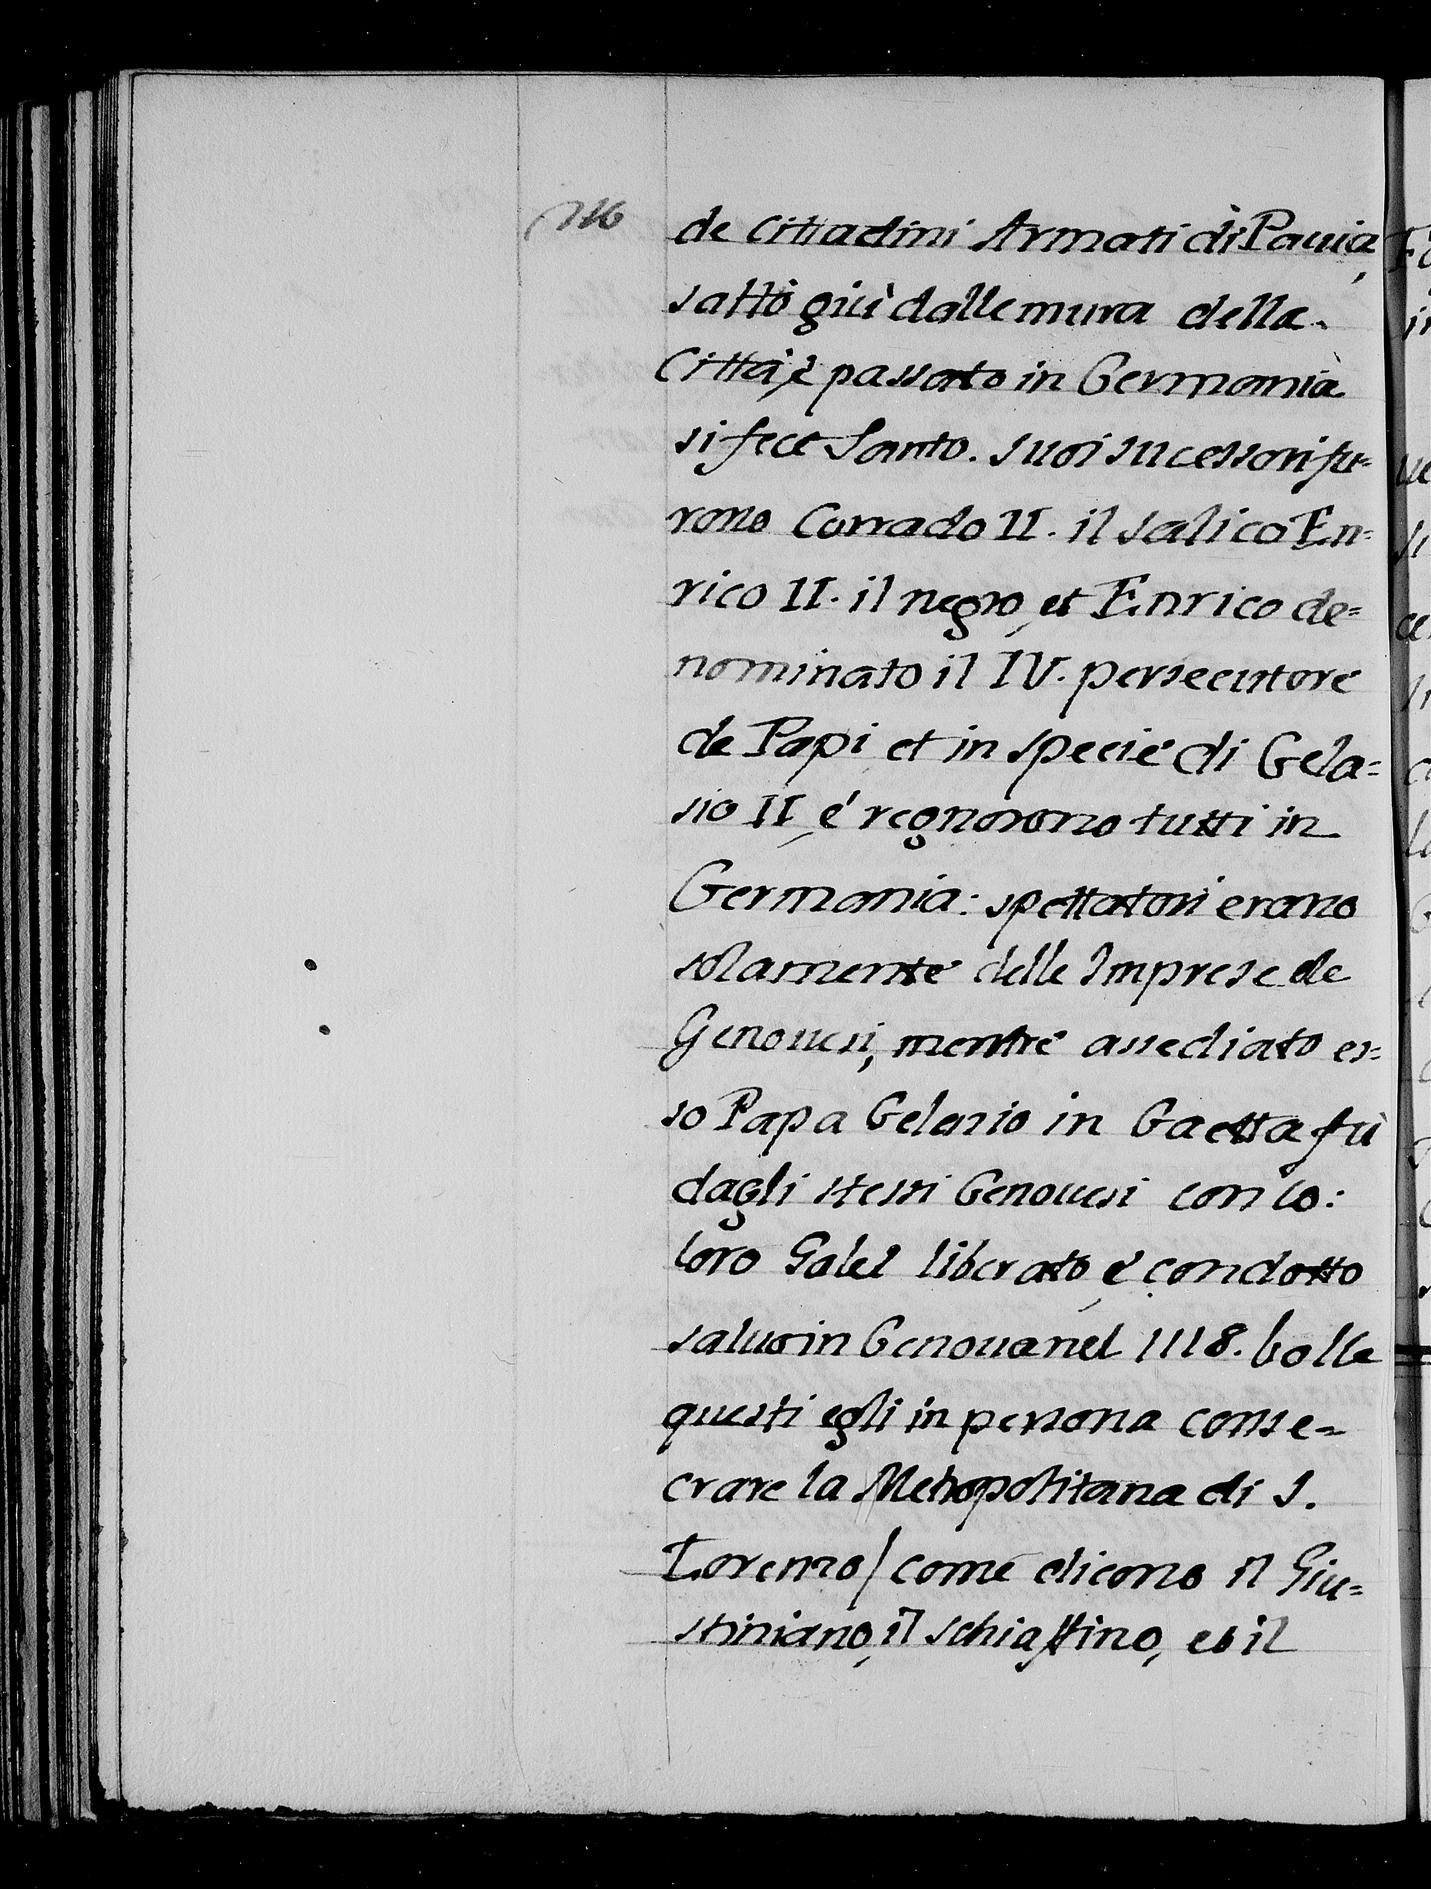 de Cittadini Armati di Pauia,
saltò giù dalle mura della
Città, è passato in Germania
si fece Santo. suoi sucessori fu=
rono Corrado II. il salico En=
rico II. il negro, et Enrico de=
nominato il IV. persecutore
de Papi et in specie di Gela=
sio II, e' regnorono tutti in
Germania: spettatori erano
solamente delle Imprese de
Genouesi, mentre assediato es=
so Papa Gelasio in Gaetta fù
dagli stessi Genouesi con lo:
loro Galee liberato, e' condotto
saluo in Genoua nel 1118. bolle
questi egli in persona conse=
crare la Metropolitana di S.
Lorenzo / come dicono il Giu=
stiniano, il schiaffino, et il